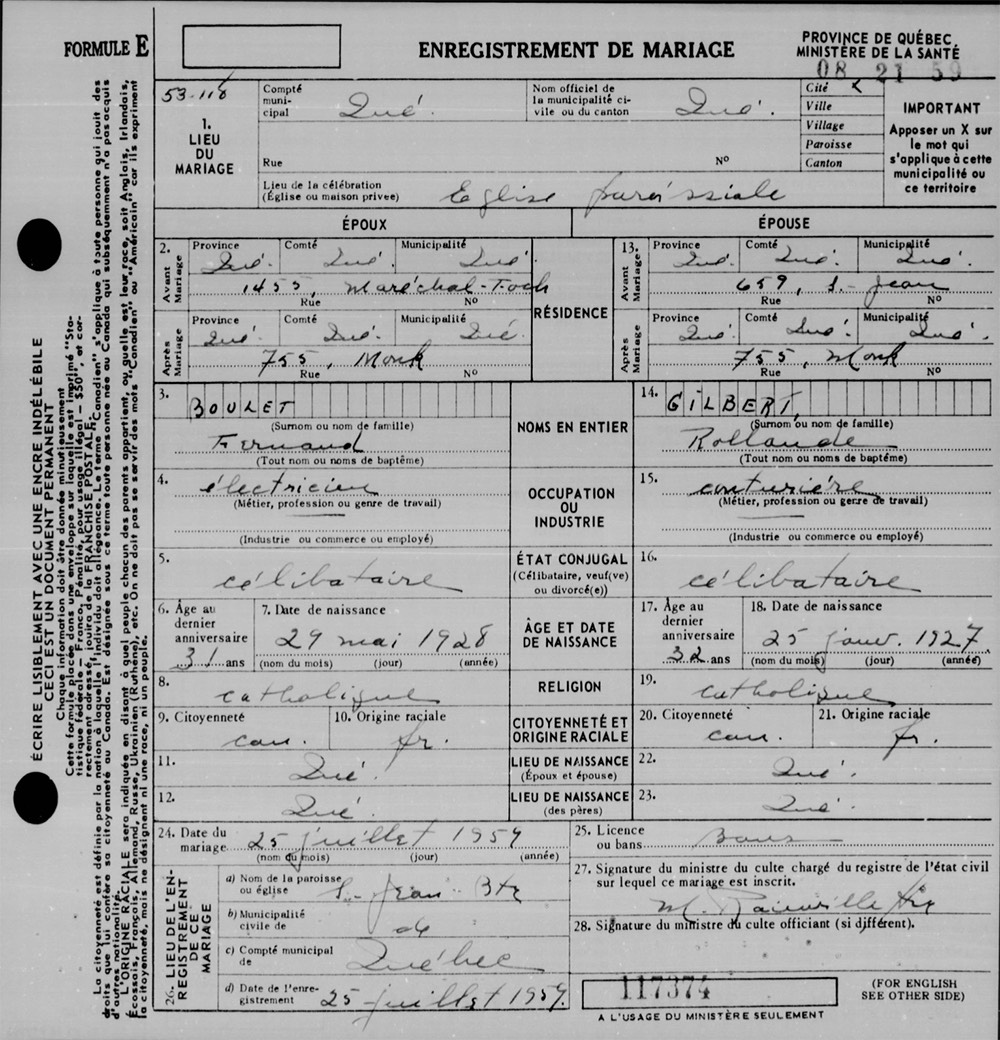 FORMULE E
ENREGISTREMENT DE MARIAGE
PROVINCE DE QUÉBEC
MINISTÈRE DE LA SANTÉ
08 21 59
53-118
1.
LIEU
DU
MARIAGE
Compté
muni-
cipal
Qué.
Nom officiel de
la municipalité ci-
vile ou du canton
Qué.
Cité x
Ville
Village
Paroisse
Canton
IMPORTANT
Apposer un X sur
le mot qui
s'applique à cette
municipalité ou
ce territoire
Rue
Nº
Lieu de la célébration
(Église ou maison privee)
Eglise paroissiale
ÉPOUX
ÉPOUSE
2.
Avant
Mariage
Province Comté Municipalité
Qué. Qué. Qué.
1455, Maréchal-Foch
Rue Nº
RÉSIDENCE
13.
Avant
Mariage
Province Comté Municipalité
Qué. Qué. Qué.
659, S.-Jean
Rue Nº
Après
Mariage
Province Comté Municipalité
Qué. Qué. Qué.
755, Monk
Rue Nº
Après
Mariage
Province Comté Municipalité
Qué. Qué. Qué.
755, Monk
Rue Nº
3.
BOULET
(Surnom ou nom de famille)
Fernand
(Tout nom ou noms de baptême)
NOMS EN ENTIER
14.
GILBERT,
(Surnom ou nom de famille)
Rollande
(Tout nom ou noms de baptême)
4.
électricien
(Métier, profession ou genre de travail)
(Industrie ou commerce ou employé)
OCCUPATION
OU
INDUSTRIE
15.
couturière
(Métier, profession ou genre de travail)
(Industrie ou commerce ou employé)
5.
célibataire
ÉTAT CONJUGAL
(Célibataire, veuf(ve)
ou divorcé(e))
16.
célibataire
6. Âge au
dernier
anniversaire
31 ans
7. Date de naissance
29 mai 1928
(nom du mois) (jour) (année)
ÂGE ET DATE
DE NAISSANCE
17. Âge au
dernier
anniversaire
32 ans
18. Date de naissance
25 janv. 1927
(nom du mois) (jour) (année)
8.
catholique
RELIGION
19.
catholique
9. Citoyenneté
can.
10. Origine raciale
fr.
CITOYENNETÉ ET
ORIGINE RACIALE
20. Citoyenneté
can.
21. Origine raciale
fr.
11.
Qué.
LIEU DE NAISSANCE
(Époux et épouse)
22.
Qué.
12.
Qué
LIEU DE NAISSANCE
(des pères)
23.
Qué.
24. Date du
mariage
25 juillet 1959
(nom du mois) (jour) (année)
25. Licence
ou bans
Bans
26. LIEU DE L'EN-
REGISTREMENT
DE CE
MARIAGE
a) Nom de la paroisse
ou église
S.-Jean-Bte
b) Municipalité
civile de
de
c) Compté municipal
de
Québec
d) Date de l'enre-
gistrement
25 juillet 1959.
27. Signature du ministre du culte chargé du registre de l'état civil
sur lequel ce mariage est inscrit.
28. Signature du ministre du culte officiant (si différent).
117374
A L'USAGE DU MINISTÈRE SEULEMENT
(FOR ENGLISH
SEE OTHER SIDE)
ÉCRIRE LISIBLEMENT AVEC UNE ENCRE INDÉLÉBILE
CECI EST UN DOCUMENT PERMANENT
Chaque information doit être donnée minutieusement
Cette formule placée dans une enveloppe sur laquelle est imprimé "Sta-
tistique fédérale — Franco, Pénalité pour usage illégal — $50", et cor-
rectement adressé, jouira de la FRANCHISE POSTALE.
La citoyenneté est définie par la nation à laquelle l'individu doit allégeance. Le terme "Canadien" s'applique à toute personne qui jouit des
droits que lui confère sa citoyenneté au Canada. Est désignée sous ce terme toute personne née au Canada qui subséquemment n'a pas acquis
d'autres nationalité.
L'ORIGINE RACIALE sera indiquée en disant à quel peuple chacun des parents appartient, ou quelle est leur race, soit Anglais, Irlandais,
Écossais, Français, Allemand, Russe, Ukrainien (Ruthène), etc. On ne doit pas se servir des mots "Canadien" ou "Américain" car ils expriment
la citoyenneté, mais ne désignent ni une race, ni un peuple.